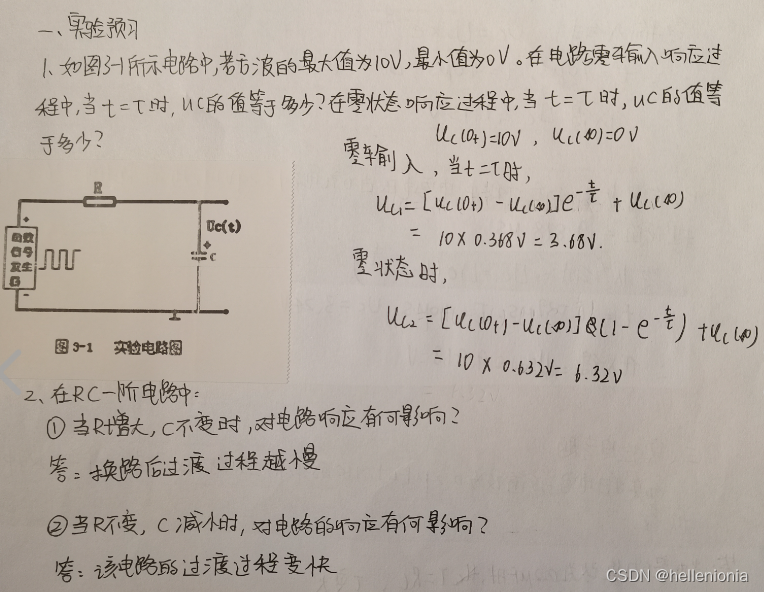 一、实验预习
1、如图3-1所示电路中,若方波的最大值为10V,最小值为0V。在电路零输入响应过
程中,当t=τ时,uc的值等于多少?在零状态响应过程中,当t=τ时,uc的值等
于多少?
Uc(0+)=10V , Uc(∞)=0V
零输入,当t=τ时,
Uc1=[Uc(0+)-Uc(∞)]e^-t/τ+Uc(∞)
=10×0.368V=3.68V.
零状态时,
Uc2=[Uc(0+)-Uc(∞)](1-e^-t/τ)+Uc(∞)
=10×0.632V=6.32V
R
+
函数
信号
发生
器
-
Uc(t)
+
C
图3-1 实验电路图
2、在RC一阶电路中:
①当R增大,C不变时,对电路响应有何影响?
答:换路后过渡过程越慢
②当R不变,C减小时,对电路的响应有何影响?
答:该电路的过渡过程变快
CSDN @hellenionia